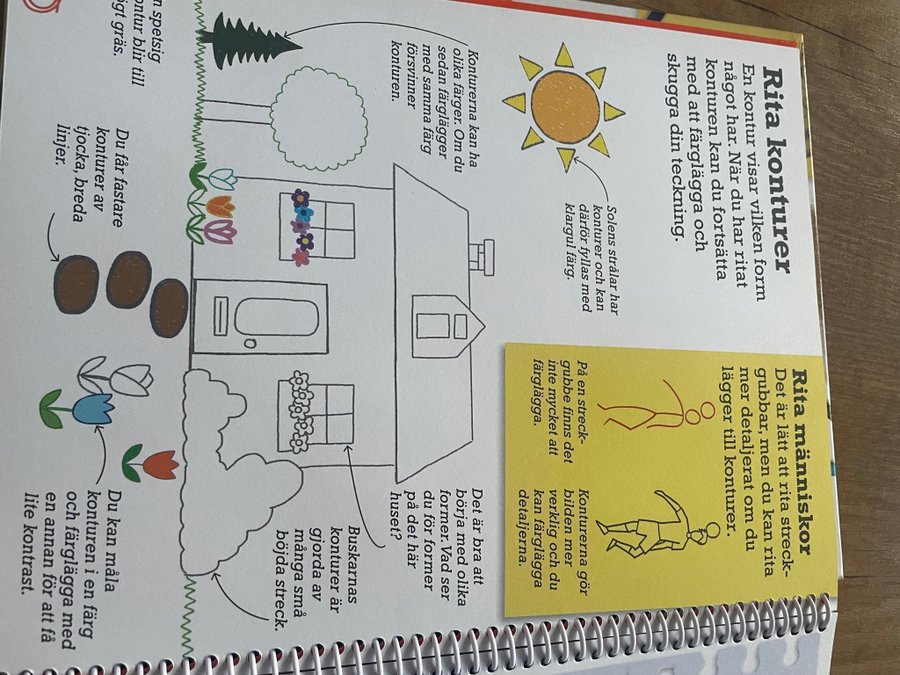 Rita konturer
En kontur visar vilken form
något har. När du har ritat
konturen kan du fortsätta
med att färglägga och
skugga din teckning.
Solens strålar har
konturer och kan
därför fyllas med
klargul färg.
Konturerna kan ha
olika färger. Om du
sedan färglägger
med samma färg
försvinner
konturen.
spetsig
ontur blir till
gräs.
Rita människor
Det är lätt att rita streck-
gubbar, men du kan rita
mer detaljerat om du
lägger till konturer.
På en streck-
gubbe finns det
inte mycket att
färglägga.
Konturerna gör
bilden mer
verklig och du
kan färglägga
detaljerna.
Det är bra att
börja med olika
former. Vad ser
du för former
på det här
huset?
Buskarnas
konturer är
gjorda av
många små
böjda streck.
Du får fastare
konturer av
tjocka, breda
linjer.
Du kan måla
konturen i en färg
och färglägga med
en annan för att få
lite kontrast.